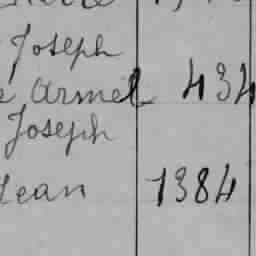 Joseph
Armel 434
Joseph
Jean 1384